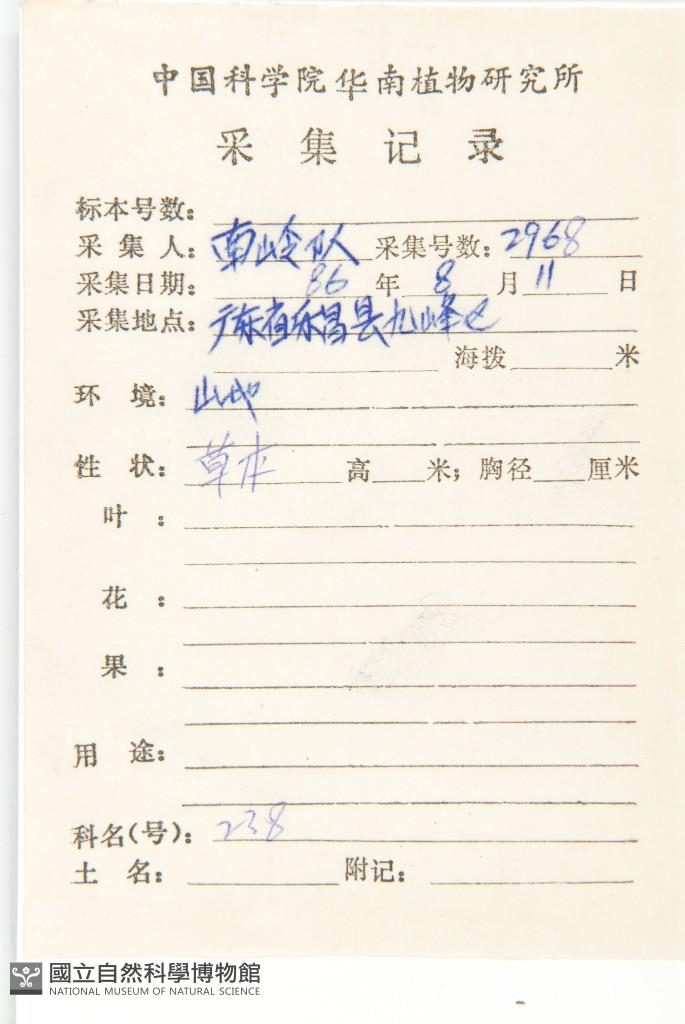 中国科学院华南植物研究所
采集记录
标本号数:
采集人: 南岭队 采集号数: 2968
采集日期: 86 年 8 月 11 日
采集地点: 广东省乐昌县九峰区
海拨 米
环境: 山地
性状: 草本 高 米; 胸径 厘米
叶:
花:
果:
用途:
科名(号): 238
土名: 附记:
國立自然科學博物館
NATIONAL MUSEUM OF NATURAL SCIENCE